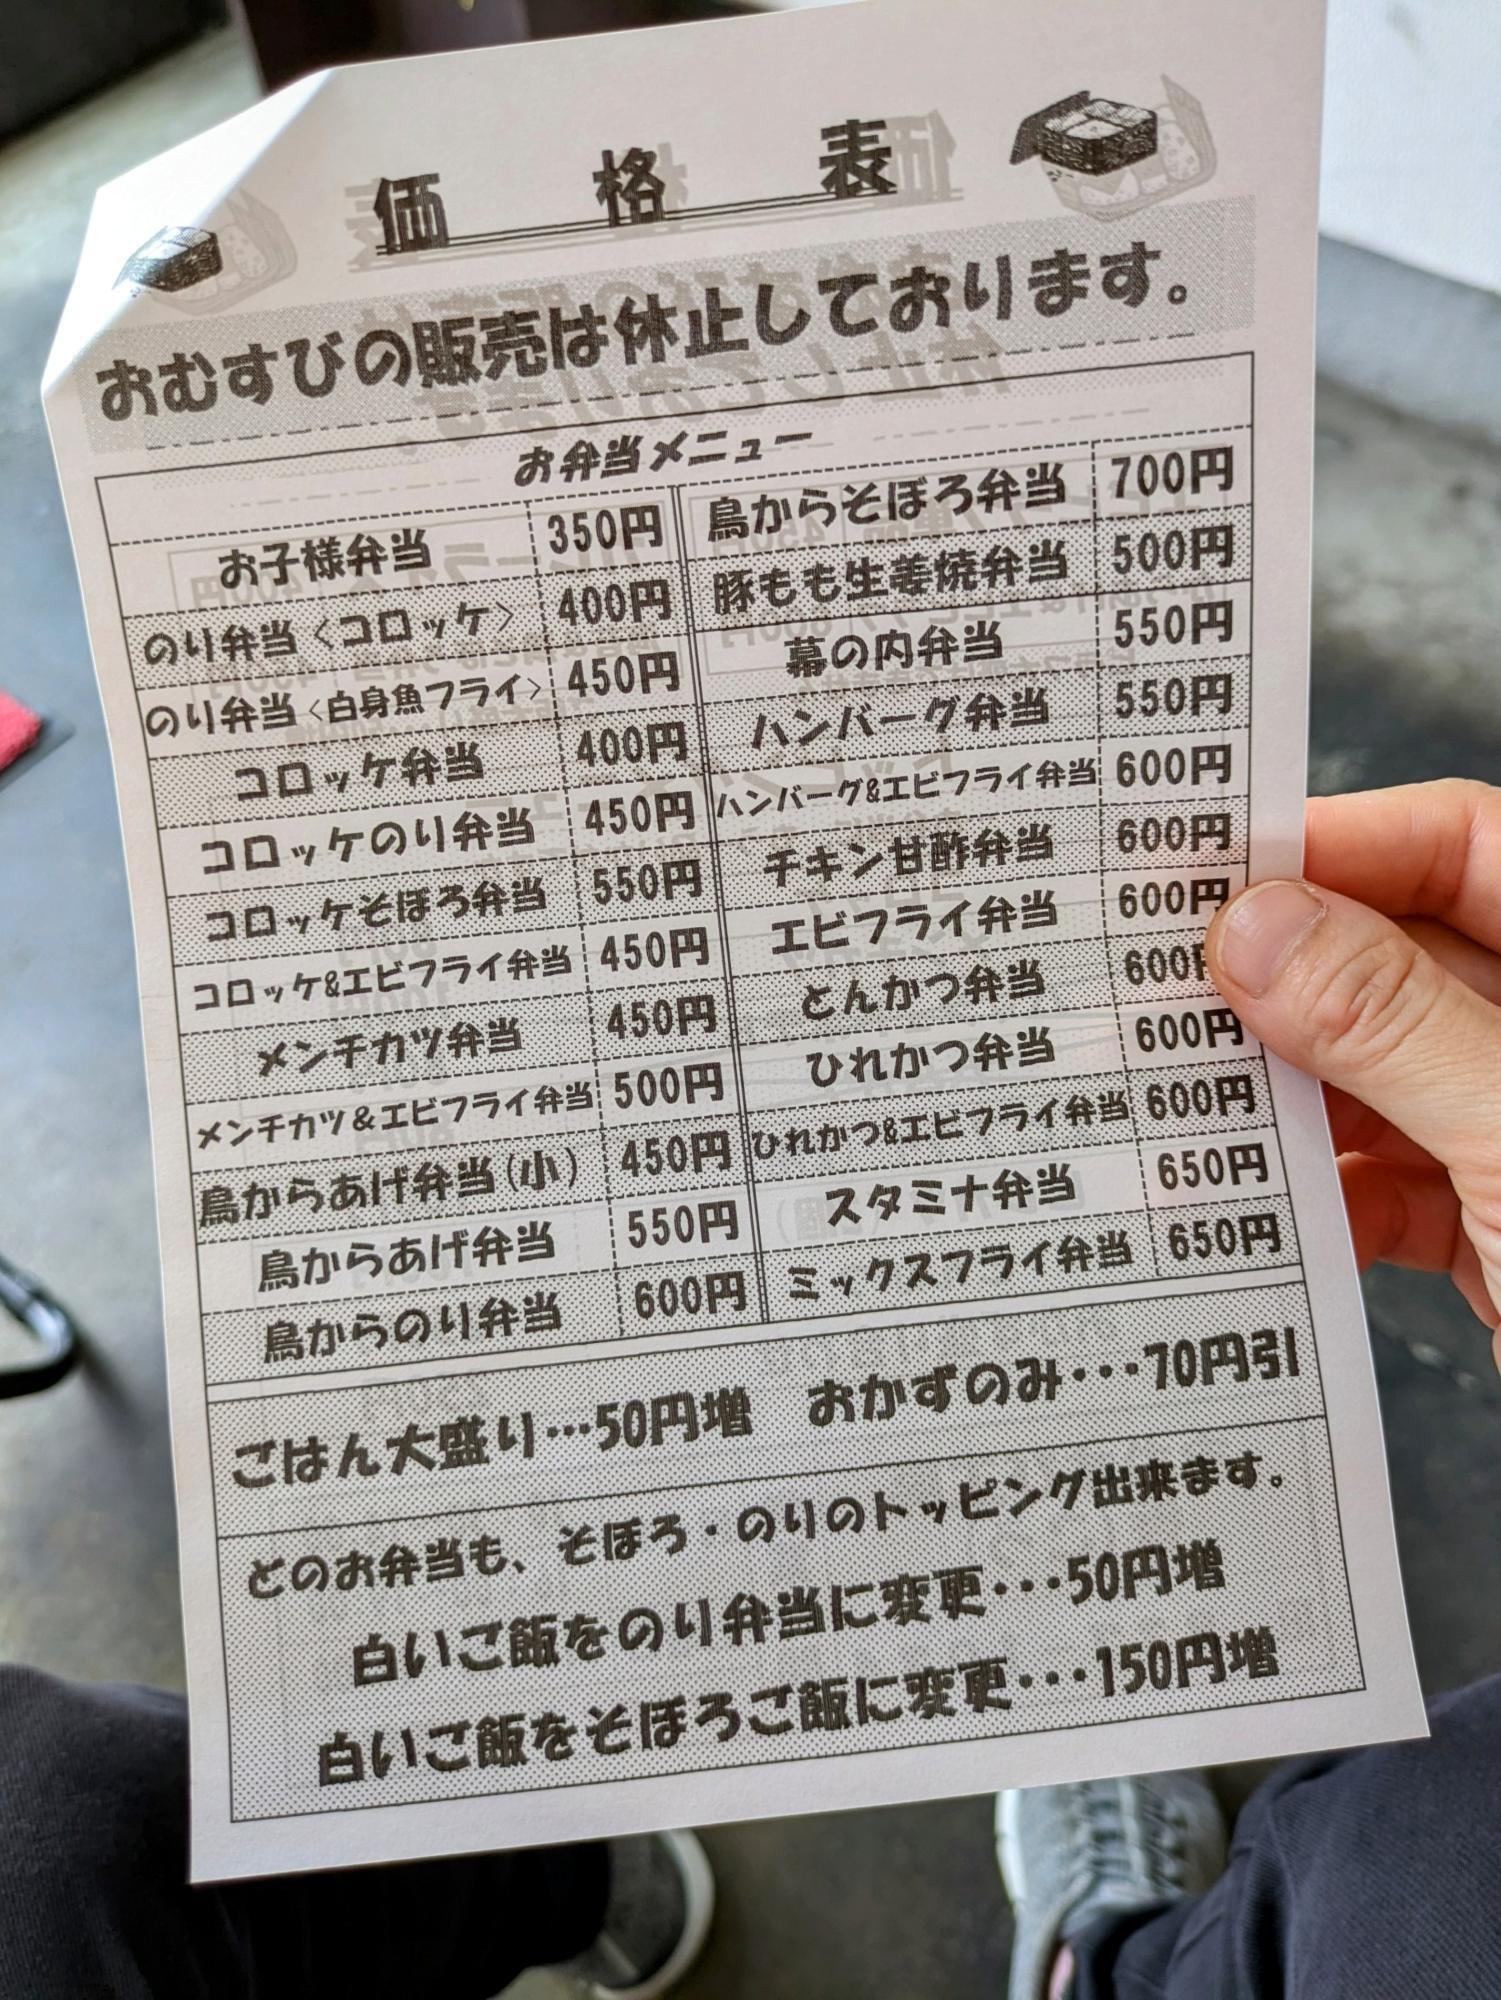 価格表
おむすびの販売は休止しております。
お弁当メニュー
お子様弁当 350円
のり弁当〈コロッケ〉 400円
のり弁当〈白身魚フライ〉 450円
コロッケ弁当 400円
コロッケのり弁当 450円
コロッケそぼろ弁当 550円
コロッケ&エビフライ弁当 450円
メンチカツ弁当 450円
メンチカツ&エビフライ弁当 500円
鳥からあげ弁当(小) 450円
鳥からあげ弁当 550円
鳥からのり弁当 600円
鳥からそぼろ弁当 700円
豚もも生姜焼弁当 500円
幕の内弁当 550円
ハンバーグ弁当 550円
ハンバーグ&エビフライ弁当 600円
チキン甘酢弁当 600円
エビフライ弁当 600円
とんかつ弁当 600円
ひれかつ弁当 600円
ひれかつ&エビフライ弁当 600円
スタミナ弁当 650円
ミックスフライ弁当 650円
ごはん大盛り…50円増 おかずのみ…70円引
どのお弁当も、そぼろ・のりのトッピング出来ます。
白いご飯をのり弁当に変更…50円増
白いご飯をそぼろご飯に変更…150円増